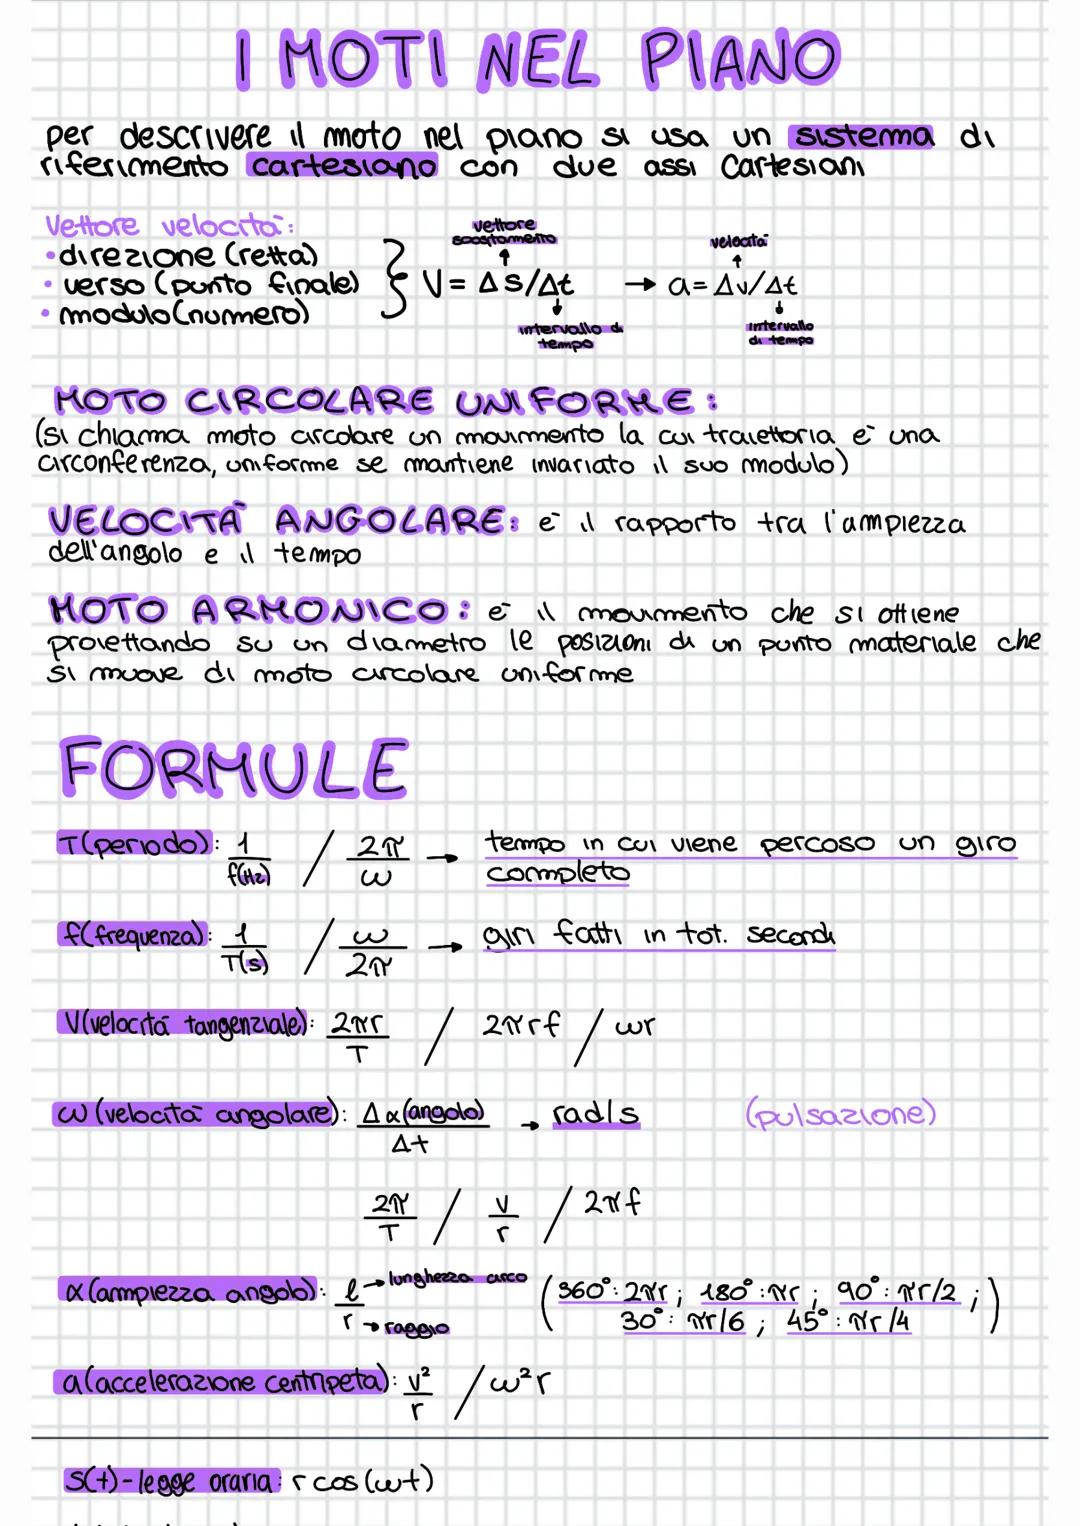 I MOTI NEL PIANO
per descrivere il moto nel piano si usa un sistema di
riferimento cartesiano con due assi Cartesiani
Vettore velocità:
• direzione (retta)
• verso (punto finale)
• modulo (numero)
vettore
spostamento
V = Δs/Δt
intervallo di
tempo
velocità
→ a = Δv/Δt
intervallo
di tempo
MOTO CIRCOLARE UNIFORME:
(si chiama moto circolare un movimento la cui traiettoria è una
circonferenza, uniforme se mantiene invariato il suo modulo)
VELOCITÀ ANGOLARE: è il rapporto tra l'ampiezza
dell'angolo e il tempo
MOTO ARMONICO: è il movimento che si ottiene
proiettando su un diametro le posizioni di un punto materiale che
si muove di moto circolare uniforme
FORMULE
T(periodo): 1/f(Hz) / 2π/ω → tempo in cui viene percoso un giro
completo
f(frequenza): 1/T(s) / ω/2π → giri fatti in tot. secondi
V(velocità tangenziale): 2πr/T / 2πrf / ωr
ω (velocità angolare): Δα(angolo)/Δt → rad/s (pulsazione)
2π/T / v/r / 2πf
α (ampiezza angolo): l/r → lunghezza arco (360°: 2πr; 180°: πr; 90°: πr/2;
→ raggio 30°: πr/6; 45°: πr/4)
a(accelerazione centripeta): v²/r / ω²r
s(t)-legge oraria: r cos(ωt)